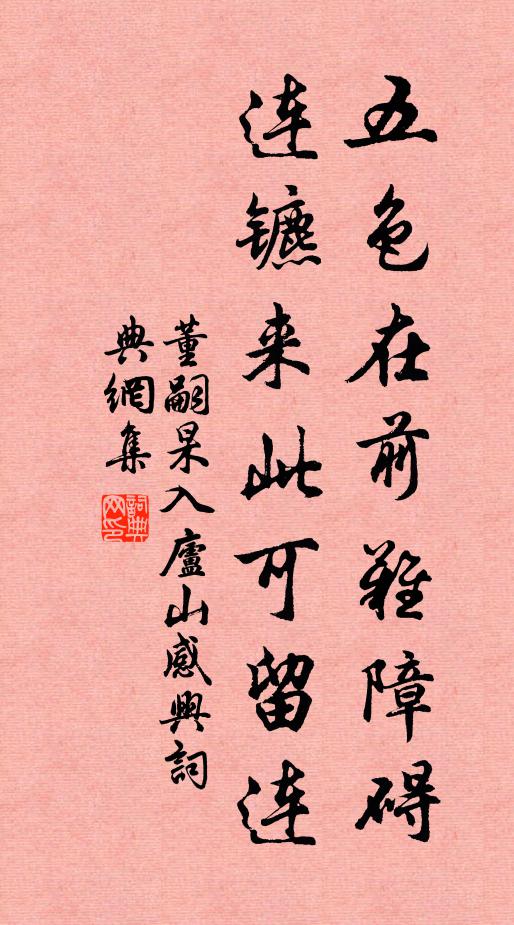 五色在前难障碍
连镳来此可留连
董嗣杲入廬山感興詞
典網集
詞典网印